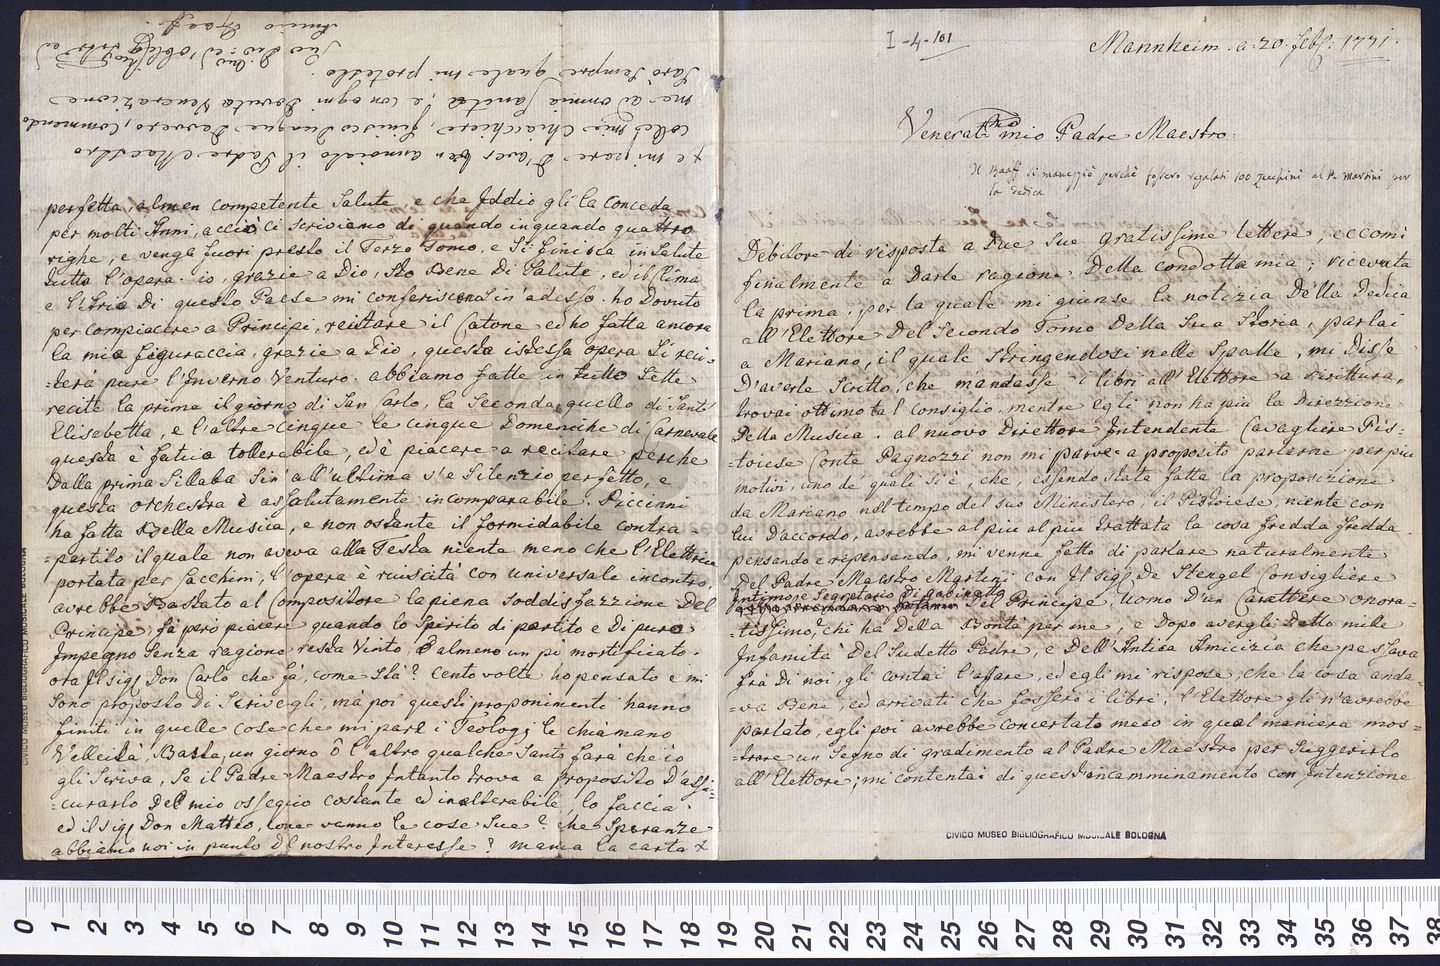 I-4-101
Mannheim. a: 20. feb: 1771.
Venerat.mo mio Padre Maestro:
Il Raaff si maneggiò perchè fossero regalati 100 zecchini al P. Martini per
la Dedica
Debitore di risposta a due sue gratissime lettere, eccomi
finalmente a darle ragione della condotta mia; ricevuta
la prima, per la quale mi giunse la notizia della Dedica
all'Elettore del secondo Tomo della sua Storia, parlai
a Mariano, il quale stringendosi nelle spalle, mi disse
d'averle scritto, che mandasse i libri all'Elettore a dirittura,
trovai ottimo tal consiglio, mentre egli non ha più la Direzzione
della Musica. al nuovo Direttore Intendente Cavagliere Pis=
=toiese Conte Pagnozzi non mi parve a proposito parlarne per più
motivi, uno de quali si è, che, essendo state fatta la proposizione
da Mariano nel tempo del suo Ministero, il Pistoiese, niente con
lui d'accordo, avrebbe al più al più trattata la cosa fredda fredda.
pensando e ripensando mi venne fatto di parlare naturalmente
del Padre Maestro Martini con il sig.r De Stengel Consigliere
Intimo e Segretario di Gabinetto
del Principe, uomo d'un Carattere onora=
=tissimo, chi ha della Bontà per me, e dopo avergli detto mille
Infamità del sudetto Padre, e dell'Antica Amicizia che passava
frà di noi, gli contai l'afare, ed egli mi rispose, che la cosa anda=
=va bene, ed arrivati che fossero i libri, l'Elettore gli n'avrebbe
parlato, egli poi avrebbe concertato meco in qual maniera mos=
=trare un segno di gradimento al Padre Maestro per suggerirlo
all'Elettore; mi contentai di quest'incamminamento con intenzione
CIVICO MUSEO BIBLIOGRAFICO MUSICALE BOLOGNA
perfetta, almen competente salute e che Iddio gli la conceda
per molti Anni, acciò ci scriviamo di quando in quando quattro
righe, e venga fuori presto il Terzo Tomo, e si finisca in salute
tutta l'opera. io, grazie a Dio, sto bene di salute, ed il clima
e l'Aria di questo Paese mi conferiscono sin'adesso. ho dovuto
per compiacere a Principi, recitare il Catone ed ho fatta ancora
la mia figuraccia, grazie a Dio, questa istessa opera si reci=
=terà pure l'Inverno venturo. abbiamo fatte in tutto sette
recite la prima il giorno di San Carlo, la seconda quello di Santa
Elisabetta, e l'altre cinque le cinque Domeniche di Carnevale
questa è fatica tollerabile, ed è piacere a recitare perchè
dalla prima sillaba sin' all'ultima s'è silenzio perfetto, e
questa orchestra è assalutamente incomparabile. Piccinni
ha fatta bella Musica, e non ostante il formidabile contra
=partito il quale non aveva alla Testa niente meno che l'Elettrice
portata per Sacchini, l'opera è riuscita con universale incontro
avrebbe bastato al Compositore la piena soddisfazzione del
Principe, fà però piacere quando lo spirito di partito e di puro
Impegno senza ragione resta vinto, ò almeno un pò mortificato.
ora il sig.r Don Carlo che fà, come stà? Cento volte ho pensato e mi
sono proposto di scrivergli, mà poi questi proponimenti hanno
finiti in quelle cose che mi pare i Teologi le chiamano
Velleità, Basta, un giorno ò l'altro qualche Santo farà che io
gli scriva, se il Padre Maestro intanto trova a proposito d'assi=
=curarlo del mio ossequio costante ed inalterabile, lo faccia.
ed il sig.r Don Matteo, come vanno le cose sue? che speranze
abbiamo noi in punto del nostro Interesse? manca la carta +
+ e mi pare d'aver ben annoiato il Padre Maestro
colle mie chiacchiere, finisco dunque davvero, Commendo
me ad omnia sancta, e con ogni dovuta venerazione
sarò sempre quale mi protesto.
Suo Div: ed obblig.mo
Amico Raaff
CIVICO MUSEO BIBLIOGRAFICO MUSICALE BOLOGNA
0 1 2 3 4 5 6 7 8 9 10 11 12 13 14 15 16 17 18 19 20 21 22 23 24 25 26 27 28 29 30 31 32 33 34 35 36 37 38